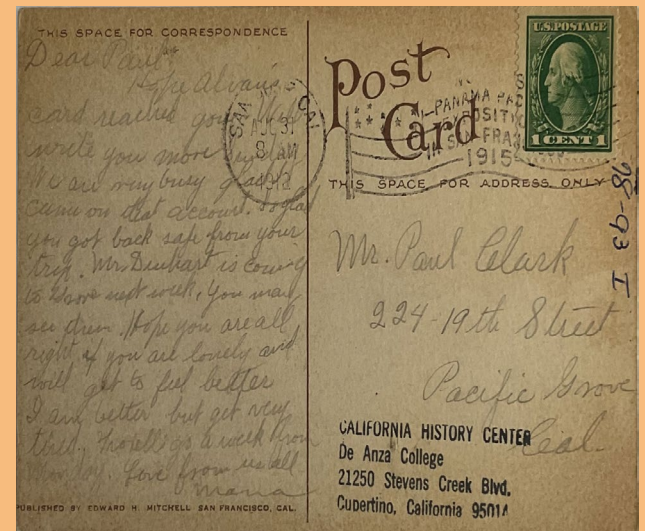 THIS SPACE FOR CORRESPONDENCE
Dear Paul
Hope Alvan's
card reached you. Will
write you more
We are very busy glad
on that account. So glad
you got back safe from your
trip. Mr. Dinhart is coming
to Grove next week, you may
see him. Hope you are all
right if you are lonely and
will get to feel better
I am better but get very
tired. go a week from
Love from us all
Mama
PUBLISHED BY EDWARD H. MITCHELL SAN FRANCISCO, CAL.
CAL
AUG 31
8 AM
Post
Card
PANAMA PAC
EXPOSITIO
IN SAN FRAN
1915
U.S. POSTAGE
1 CENT 1
THIS SPACE FOR ADDRESS ONLY
98-93 I
Mr. Paul Clark
224-19th Street
Pacific Grove
Cal.
CALIFORNIA HISTORY CENTER
De Anza College
21250 Stevens Creek Blvd.
Cupertino, California 95014